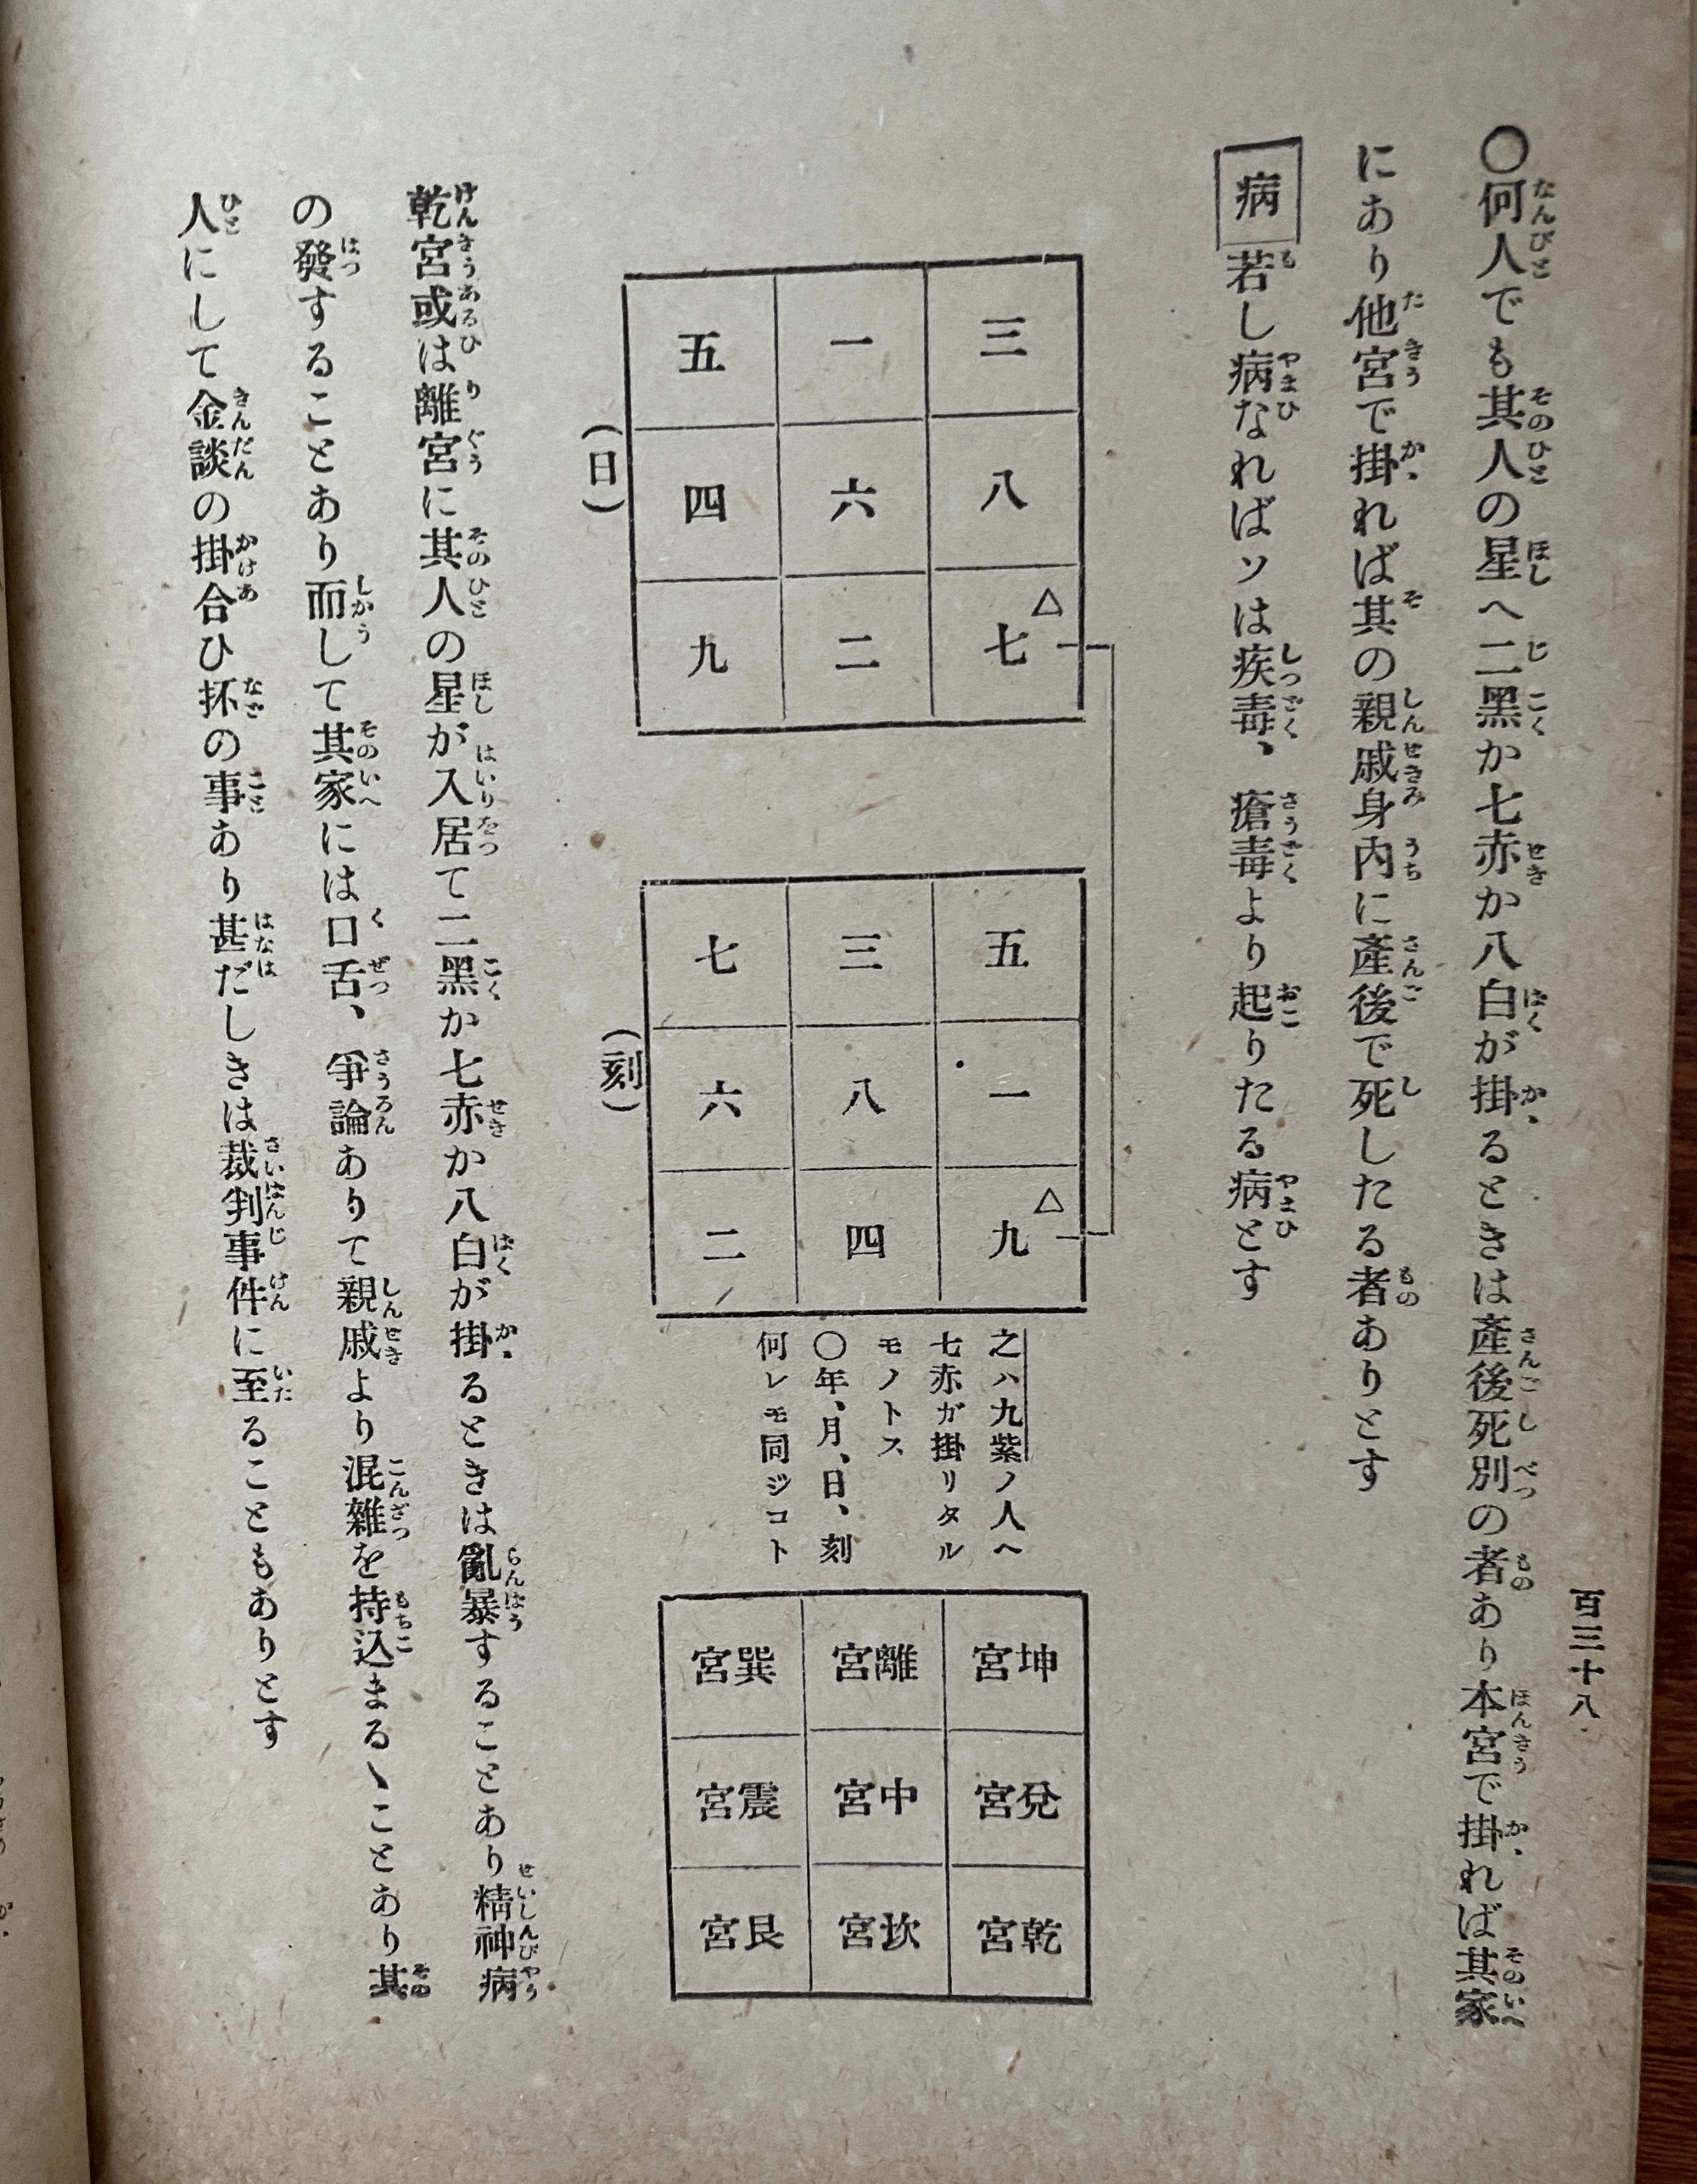 百三十八
〇何人でも其人の星へ二黑か七赤か八白が掛るときは產後死別の者あり本宮で掛れば其家
にあり他宮で掛れば其の親戚身內に產後で死したる者ありとす
病 若し病なればソは疾毒、瘡毒より起りたる病とす
五 一 三
四 六 八
九 二 七
△
(日)
七 三 五
六 八 一
二 四 九
△
(刻)
之ハ九紫ノ人ヘ
七赤ガ掛リタル
モノトス
〇年、月、日、刻
何レモ同ジコト
宮巽 宮離 宮坤
宮震 宮中 宮兌
宮艮 宮坎 宮乾
乾宮或は離宮に其人の星が入居て二黑か七赤か八白が掛るときは亂暴することあり精神病
の發することあり而して其家には口舌、爭論ありて親戚より混雜を持込まるゝことあり其
人にして金談の掛合ひ抔の事あり甚だしきは裁判事件に至ることもありとす